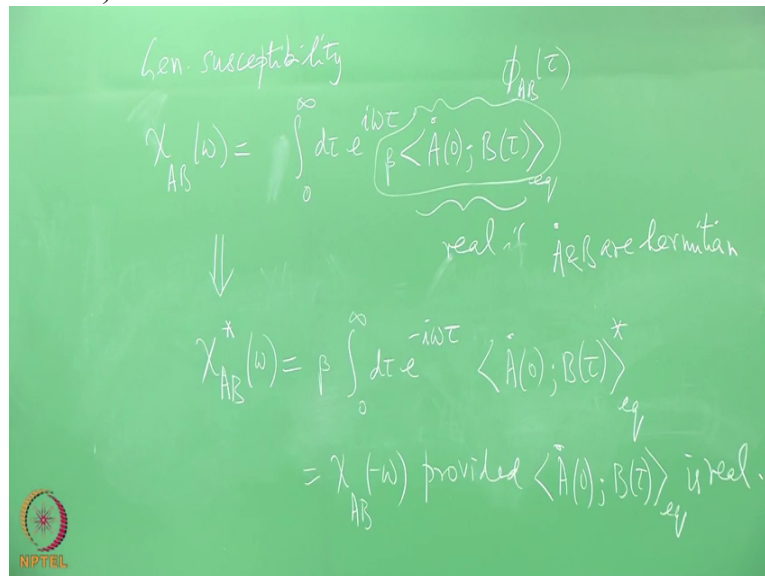 Gen. susceptibility ϕ_AB(τ)
χ_AB(ω) = ∫_0^∞ dτ e^{iωτ} β<Ȧ(0); B(τ)>_eq
real if Ȧ & B are hermitian
⇓
χ*_AB(ω) = β ∫_0^∞ dτ e^{-iωτ} <Ȧ(0); B(τ)>*_eq
= χ_AB(-ω) provided <Ȧ(0); B(τ)>_eq is real.
NPTEL